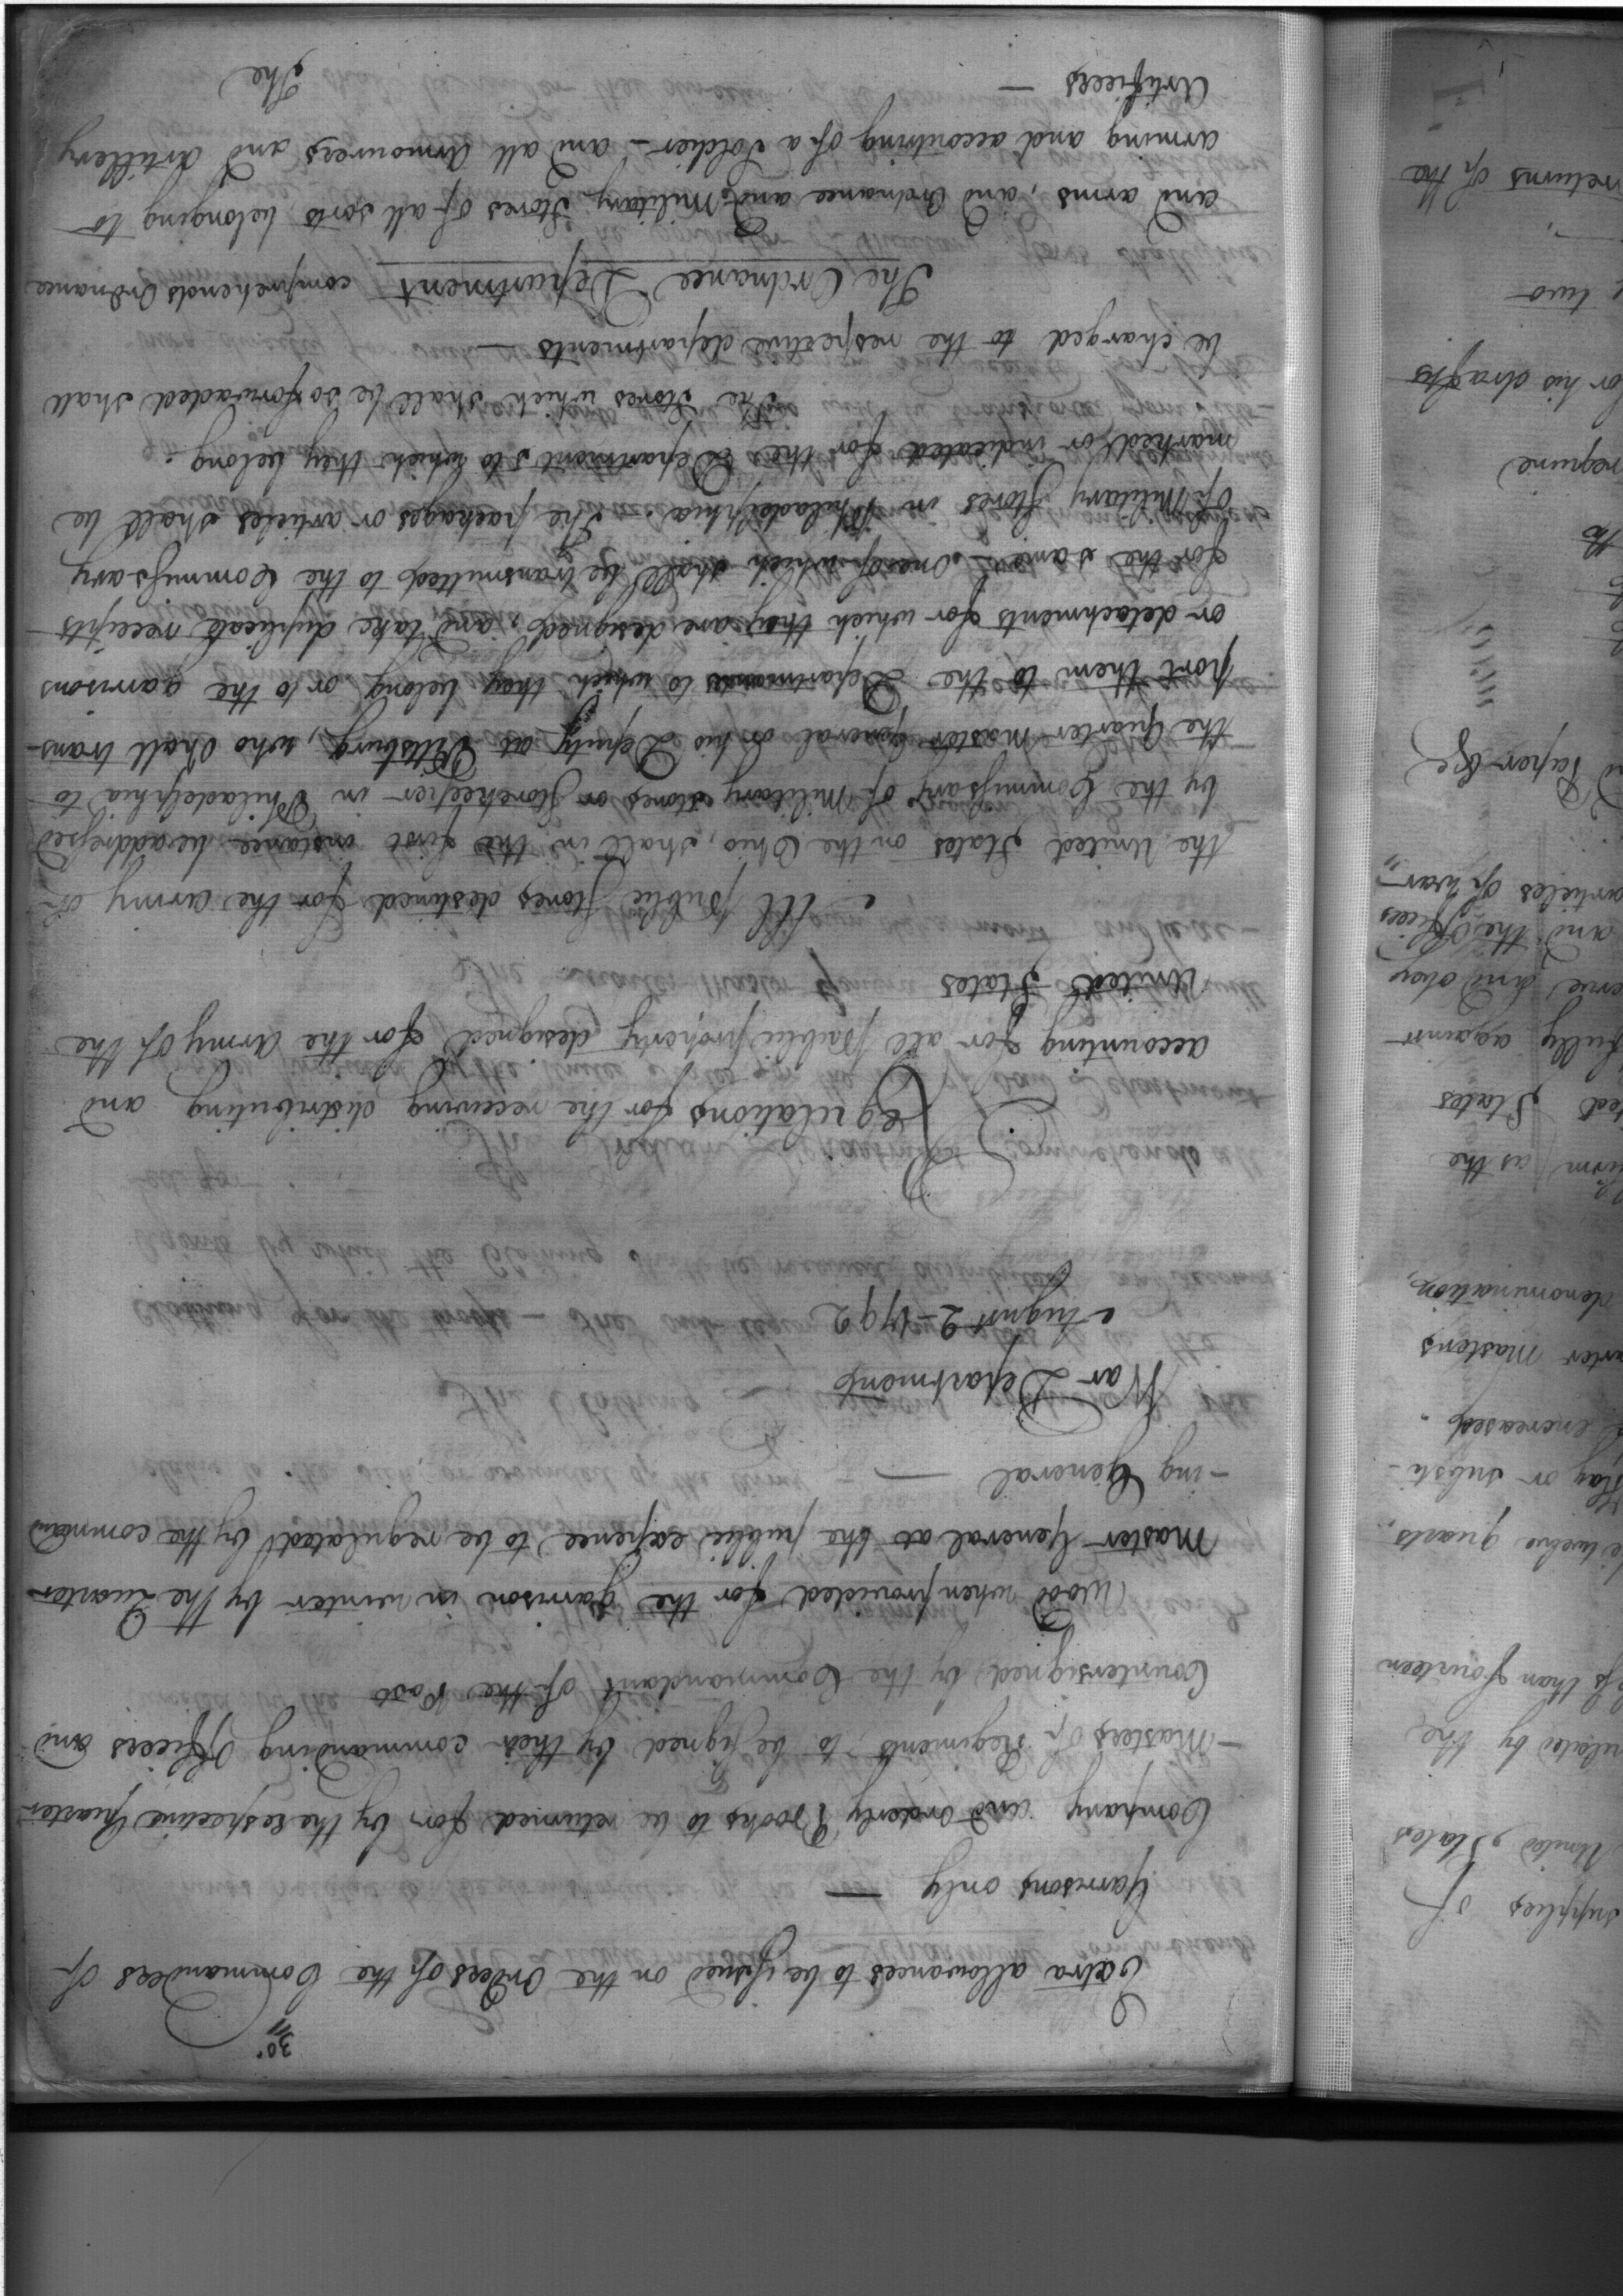 30.
Extra allowances to be issued on the Orders of the Commanders of
Garrisons only —
Company and orderly Books to be returned for by the respective Quarter
-Masters of Regiments, to be signed by their commanding Officers and
Countersigned by the Commandant of the Post
Wood when provided for the garrison in winter by the Quarter
Master General at the public expence to be regulated by the command
-ing General —
War Department
August 2 - 1792
Regulations for the receiving distributing and
accounting for all Public property designed for the Army of the
United States
All public stores destined for the army of
the United States on the Ohio, shall in the first instance be addressed
by the Commissary of Military stores or Storekeeper in Philadelphia to
the Quarter Master General or his Deputy at Pittsburg, who shall trans-
port them to the Departments to which they belong or to the garrisons
or detachments for which they are designed, and take duplicate receipts
for the same - One of which shall be transmitted to the Commissary
of Military Stores in Philadelphia. The packages or articles shall be
marked or indicated for the Departments to which they belong.
The stores which shall be so forwaded shall
be charged to the respective departments —
The Ordnance Department comprehends Ordnance
and arms, and Ordnance and Military Stores of all sorts belonging to
arming and accoutring of a Soldier - and all Armourers and Artillery
Artificers —
The
supplies of
United States
ulated by the
ss than fourteen
e twelve quarts
Pay or subsi-
encreased.
rter Masters
denomination,
as the
States
fully against
and obey
and the Officers
articles of War"
Paper &c
require
for his drafts
two
returns of the